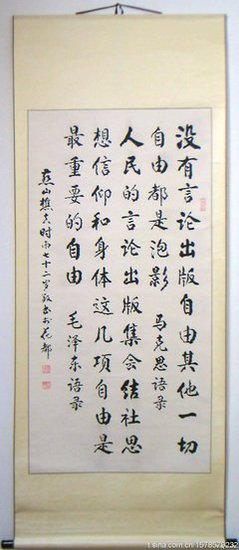 没有言论出版自由其他一切
自由都是泡影 马克思语录
人民的言论出版集会结社思
想信仰和身体这几项自由是
最重要的自由 毛泽东语录
燕山樵夫时雨七十二岁敬书于花都
t.sina.com.cn/1578578232